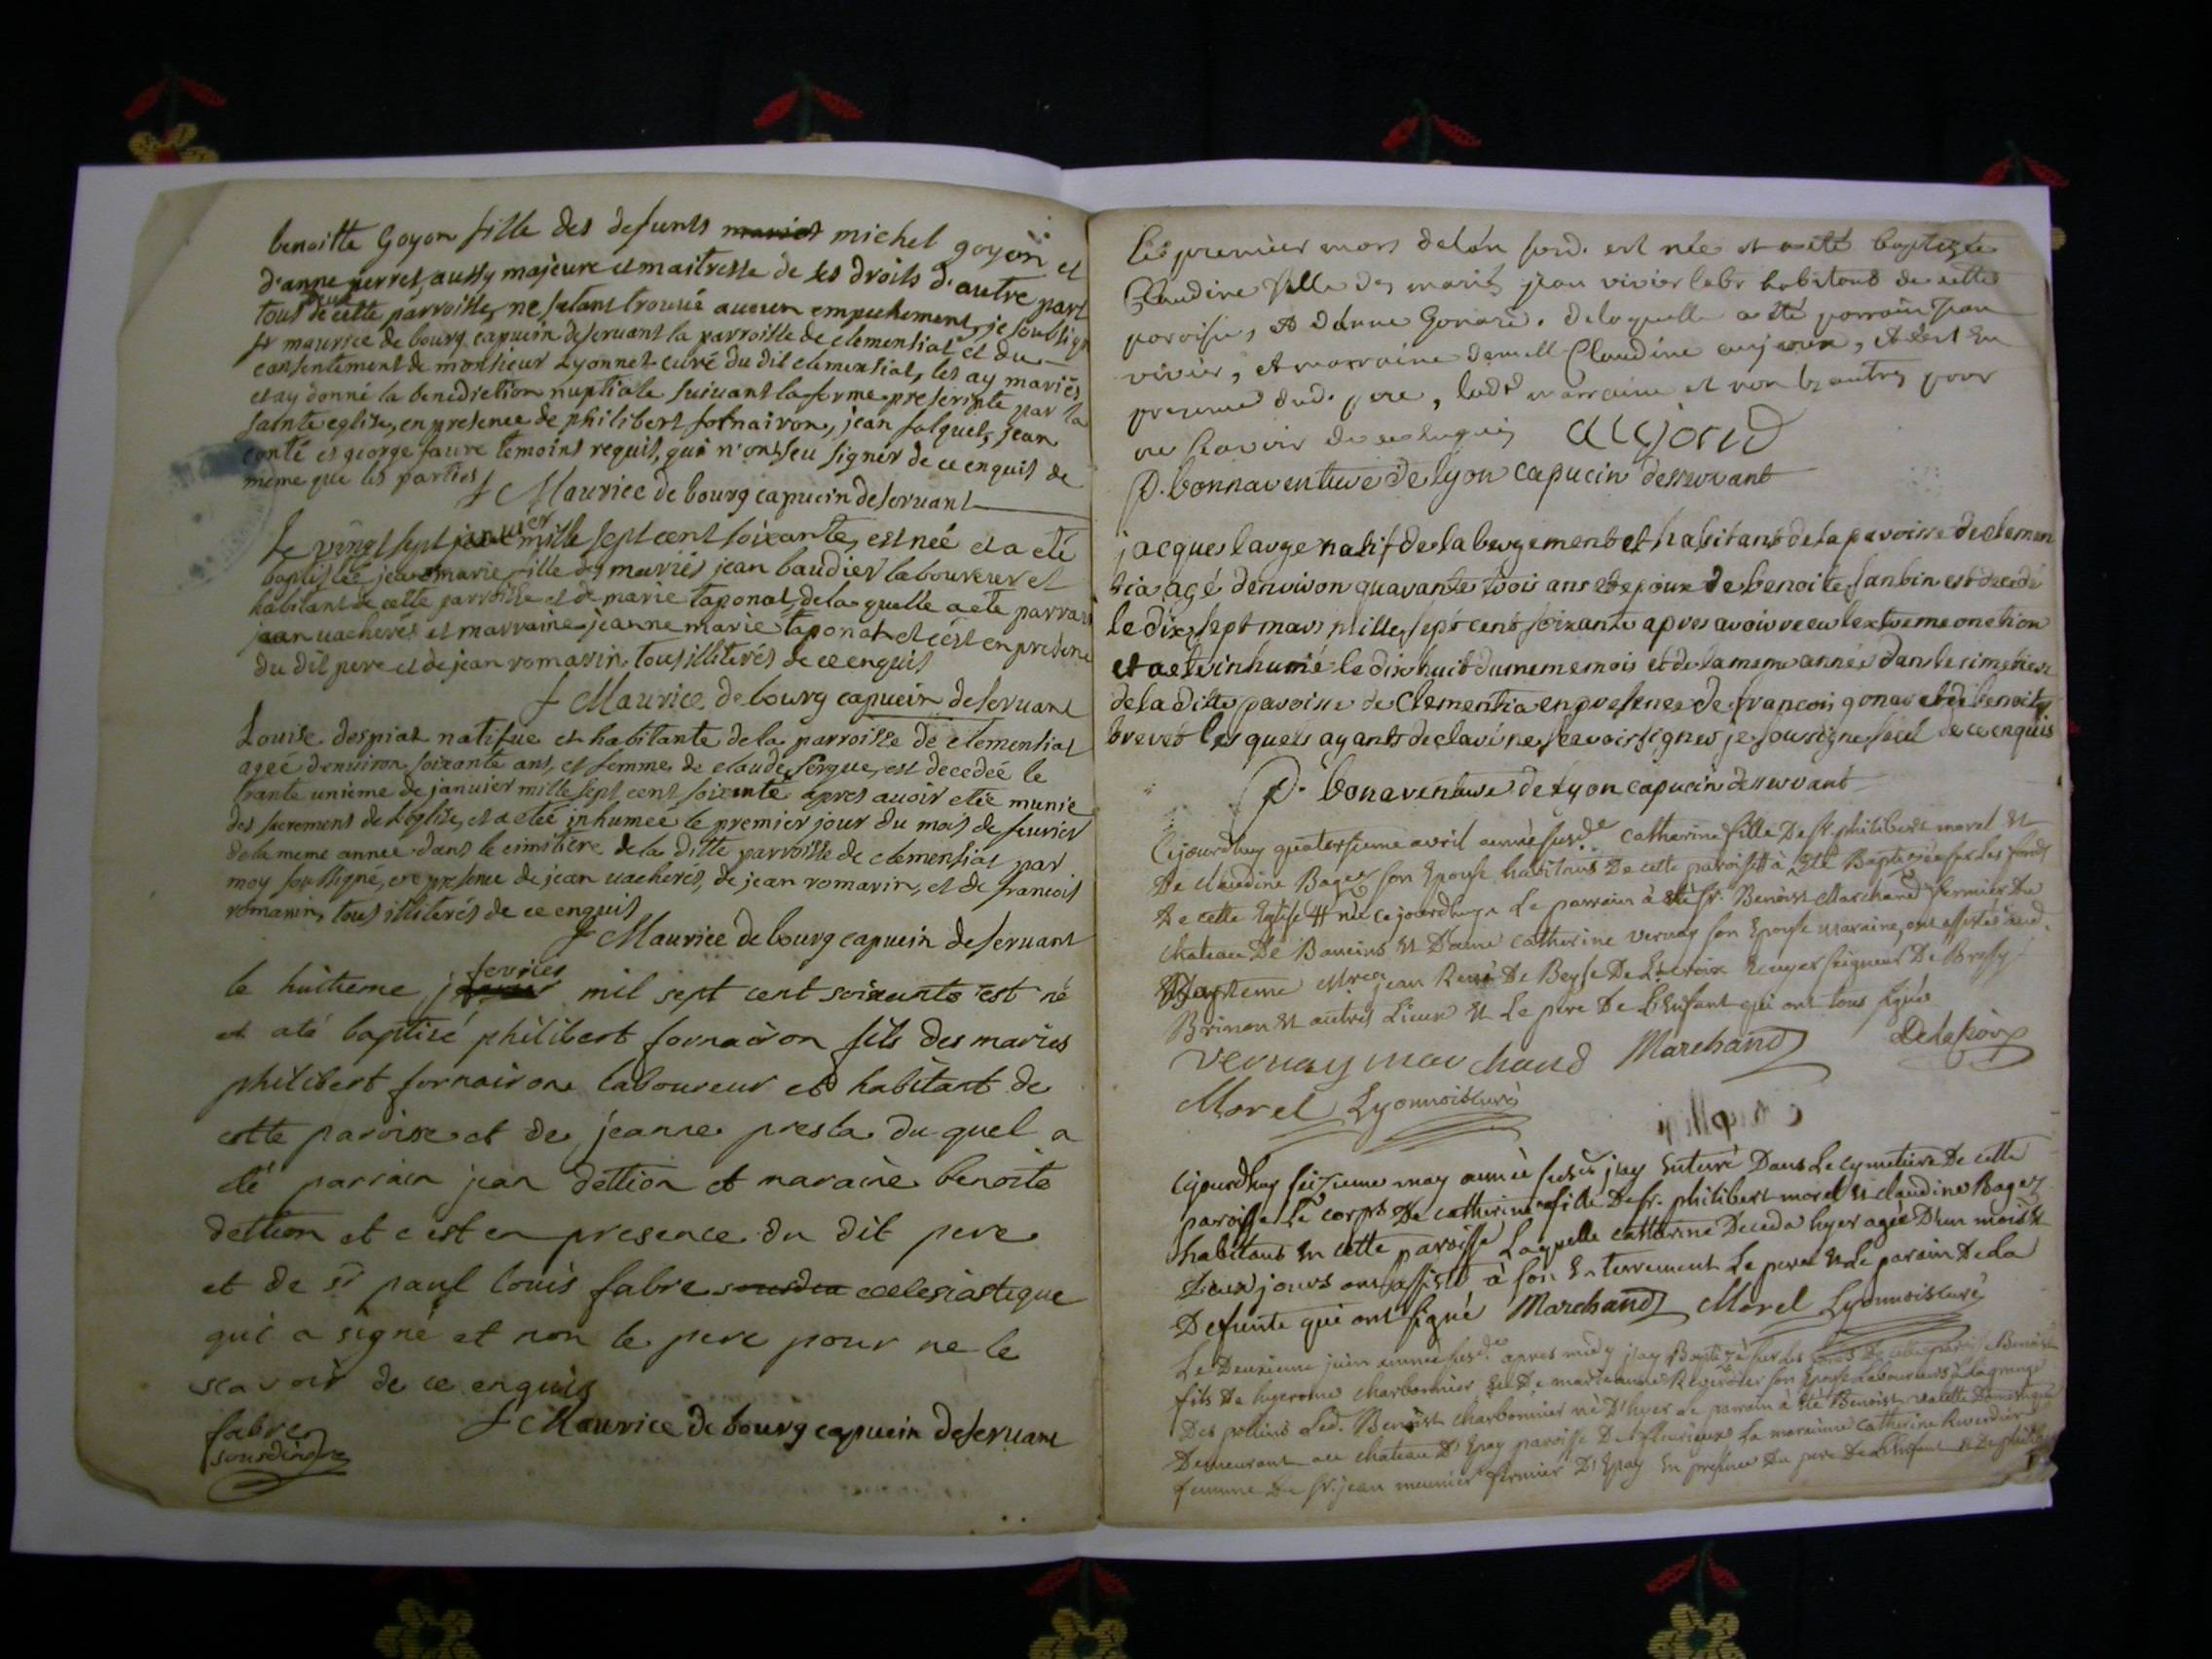 benoitte Goyon fille des defunts michel goyon et
d'anne perret, aussy majeure et maitresse de ses droits d'autre part
tous deux de cette parroisse, ne setant trouvé aucun empechement, je soussigné
fr maurice de bourg capucin deservant la parroisse de clemensiat et du
consentement de monsieur Lyonnet curé du dit clemensiat, les ay mariés
et ay donné la benediction nuptiale suivant la forme prescripte par la
sainte eglise, en presence de philibert fornairon, jean folquet, jean
conté et george faure temoins requis, qui n'ont seu signer de ce enquis de
meme que les parties
f Maurice de bourg capucin deservant
Le vingt sept janvier mille sept cent soixante, est née et a eté
baptisée jeanne marie fille des mariés jean baudier laboureur et
habitant de cette parroisse et de marie taponat, de la quelle a ete parrain
jean vacherés et marraine jeanne marie taponat et c'est en presence
du dit pere et de jean romarin tous illiterés de ce enquis
f Maurice de bourg capucin deservant
Louise despiat natifue et habitante de la parroisse de clemensiat
agée d'environ soixante ans, et femme de claude sergue, est decedée le
trante unieme de janvier mille sept cent soixante apres avoir etée munie
des sacrements de L'eglise, et a etée inhumée le premier jour du mois de fevrier
de la meme année dans le cimetiere de la ditte parroisse de clemensiat par
moy soussigné, en presence de jean vacherés, de jean romarin, et de francois
romarin, tous illiterés de ce enquis
f Maurice de bourg capucin deservant
le huitieme fevrier mil sept cent soixante est né
et a té baptisé philibert fornairon fils des mariés
philibert fornairon laboureur et habitant de
cette paroisse et de jeanne presla du quel a
été parrain jean dettion et maraine benoite
dettion et c'est en presence du dit pere
et de sr paul louis fabre ecclesiastique
qui a signé et non le pere pour ne le
scavoir de ce enquis
fabre
sousdiacre
f Maurice de bourg capucin deservant
Le premier mars de l'an susd. est née et a eté baptizée
Claudine fille des mariés jean vivier labr habitans de cette
paroisse, et d'anne Gonard. de laquelle a été parrain Jean
vivier, et marraine demlle Claudine aujord, et c'est en
presence dud. pere, ladt marraine et non les autres pour
ne scavoir de ce enquis aujord
P. bonnaventure de lyon capucin desservant
jacques lauge natif de labergement et habitant de la paroisse de clemen
tia agé d'environ quarante trois ans epoux de benoite sanbin est decedé
le dix sept mars mille sept cent soixante apres avoir receu l'extreme onction
et a eté inhumé le dix huit du meme mois et de la meme année dans le cimetiere
de la ditte paroisse de Clementia en presence de francois gonar et de benoit
brevet lesquels ayants declaré ne scavoir signer je soussigné seul de ce enquis
P. bonaventure de Lyon capucin desservant
Cejourdhuy quatorsieme avril année susde catherine fille De Sr philibert morel et
De claudine Bagez son Epouse habitans De cette paroisse à été Baptizée sur les fonds
De cette Eglise née ce jourdhuy. Le parrain à été sr. Benoist Marchand fermier Du
chateau De Baneins et Dame catherine vernay son Epouse maraine, ont assistés aud.
Baptême Mre jean René De Beyse De Lacroix Ecuyer seigneur De Bressy
Brinon et autres Lieux et Le pere De L'Enfant qui ont tous signés
vernay marchand Marchand Delacroix
Morel Lyonnois curé
Cejourdhuy seizieme may année susde jay enterré Dans Le cymetiere De cette
paroisse Le corps De catherine fille De sr. philibert morel et claudine Bagez
habitans en cette paroisse Laquelle catherine Deceda hyer agée D'un mois et
Deux jours ont assisté à son Enterrement Le pere et Le parain De La
Defunte qui ont signé Marchand Morel Lyonnois curé
Le Deuxieme juin année susde apres midy jay Baptizé sur Les fonds De cette paroisse Benoist
fils De hyerome charbonnier et De marieanne Reverdier son Epouse Laboureurs à Lagrange
Des pollins Led. Benoist charbonnier né D'hyer Le parrain à été Benoist valette Domestique
Demeurant au chateau D'Epay paroisse De fleurieux La maraine Catherine Reverdier
femme De Sr. jean meunier fermier D'Epay en presence Du pere De L'Enfant